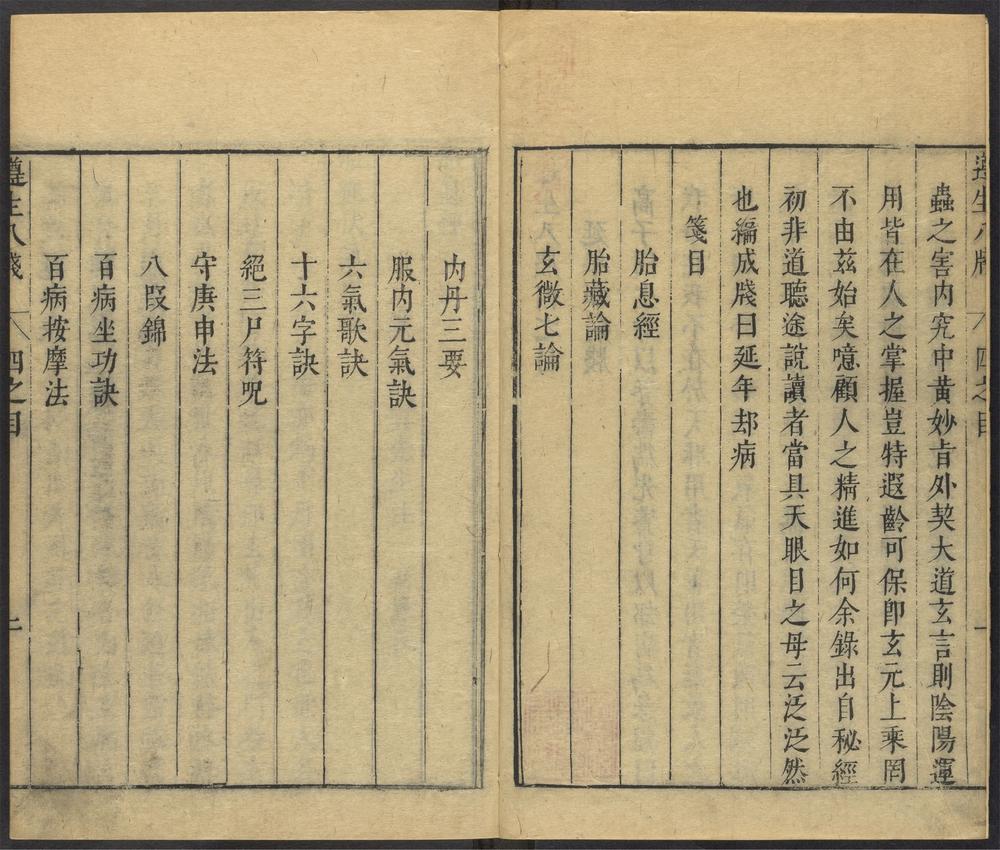 蟲之害内究中黃妙旨外契大道玄言則陰陽運
用皆在人之掌握豈特遐齡可保卽玄元上乘罔
不由茲始矣噫顧人之精進如何余錄出自秘經
初非道聽途說讀者當具天眼目之毋云泛泛然
也編成牋曰延年却病
箋目
胎息經
胎藏論
玄微七論
内丹三要
服内元氣訣
六氣歌訣
十六字訣
絕三尸符呪
守庚申法
八叚錦
百病坐功訣
百病按摩法
遵生八牋 四之目 二